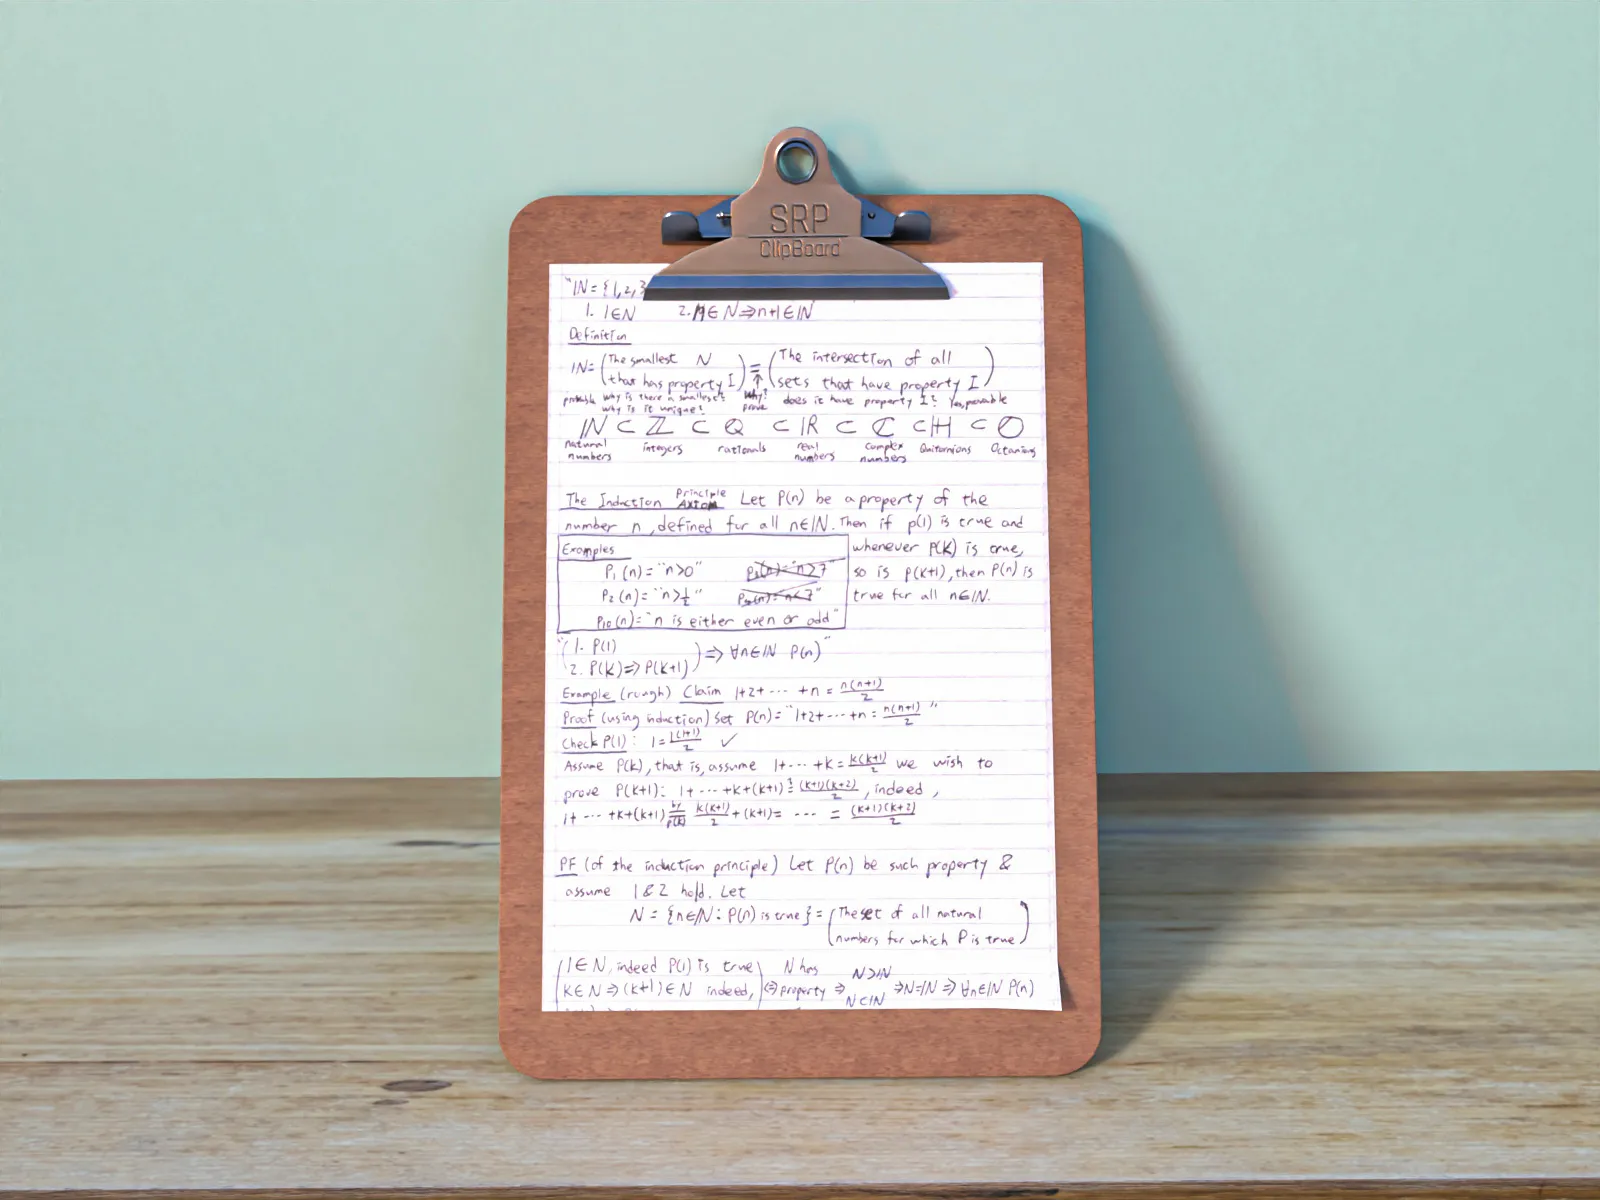 SRP
ClipBoard
"ℕ = {1, 2, 3
1. 1∈N 2. n∈N ⇒ n+1∈ℕ"
Definition
ℕ = (The smallest N that has property I) = (The intersection of all sets that have property I)
provable why is there a smallest? why is it unique? ↑ why? prove does it have property I? Yes, provable
ℕ ⊂ ℤ ⊂ ℚ ⊂ ℝ ⊂ ℂ ⊂ ℍ ⊂ 𝕆
natural numbers integers rationals real numbers complex numbers Quiternions Octanions
The Induction Principle Axiom Let P(n) be a property of the
number n, defined for all n∈ℕ. Then if p(1) is true and
whenever P(K) is true,
so is p(k+1), then P(n) is
true for all n∈ℕ.
Examples
P₁(n) = "n>0" P₃(n) = "n>7"
P₂(n) = "n>½" P₄(n) = "n<7"
P₁₀(n) = "n is either even or odd"
"(1. P(1)
2. P(K) ⇒ P(K+1)) ⇒ ∀n∈ℕ P(n)"
Example (rough) Claim 1+2+ ··· +n = n(n+1)/2
Proof (using induction) Set P(n) = "1+2+ ··· +n = n(n+1)/2"
Check P(1): 1 = 1(1+1)/2 ✓
Assume P(k), that is, assume 1+ ··· +k = k(k+1)/2 we wish to
prove P(k+1): 1+ ··· +k+(k+1) ≟ (k+1)(k+2)/2, indeed,
1+ ··· +k+(k+1) =by P(k)= k(k+1)/2 + (k+1) = ··· = (k+1)(k+2)/2
PF (of the induction principle) Let P(n) be such property &
assume 1 & 2 hold. Let
N = {n∈ℕ : P(n) is true} = (The set of all natural
numbers for which P is true)
(1∈N, indeed P(1) is true
K∈N ⇒ (k+1)∈N indeed,) ⇔ N has property ⇒ N⊃ℕ N⊂ℕ ⇒ N=ℕ ⇒ ∀n∈ℕ P(n)